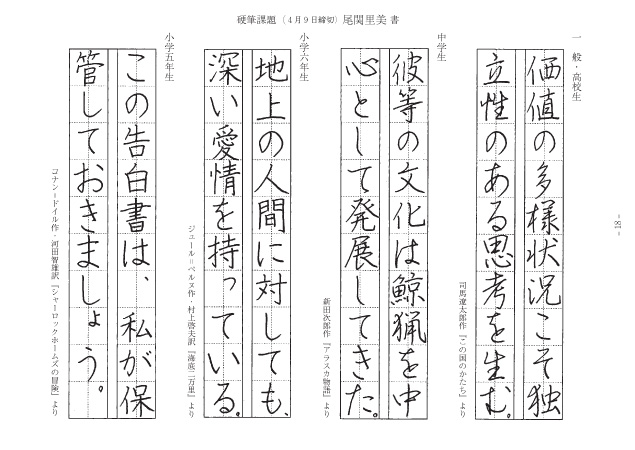 硬筆課題（4月9日締切）尾関里美 書
一般・高校生
価値の多様状況こそ独
立性のある思考を生む。
司馬遼太郎作『この国のかたち』より
中学生
彼等の文化は鯨猟を中
心として発展してきた。
新田次郎作『アラスカ物語』より
小学六年生
地上の人間に対しても、
深い愛情を持っている。
ジュール＝ベルヌ作・村上啓夫訳『海底二万里』より
小学五年生
この告白書は、私が保
管しておきましょう。
コナン＝ドイル作・河田智雄訳『シャーロックホームズの冒険』より